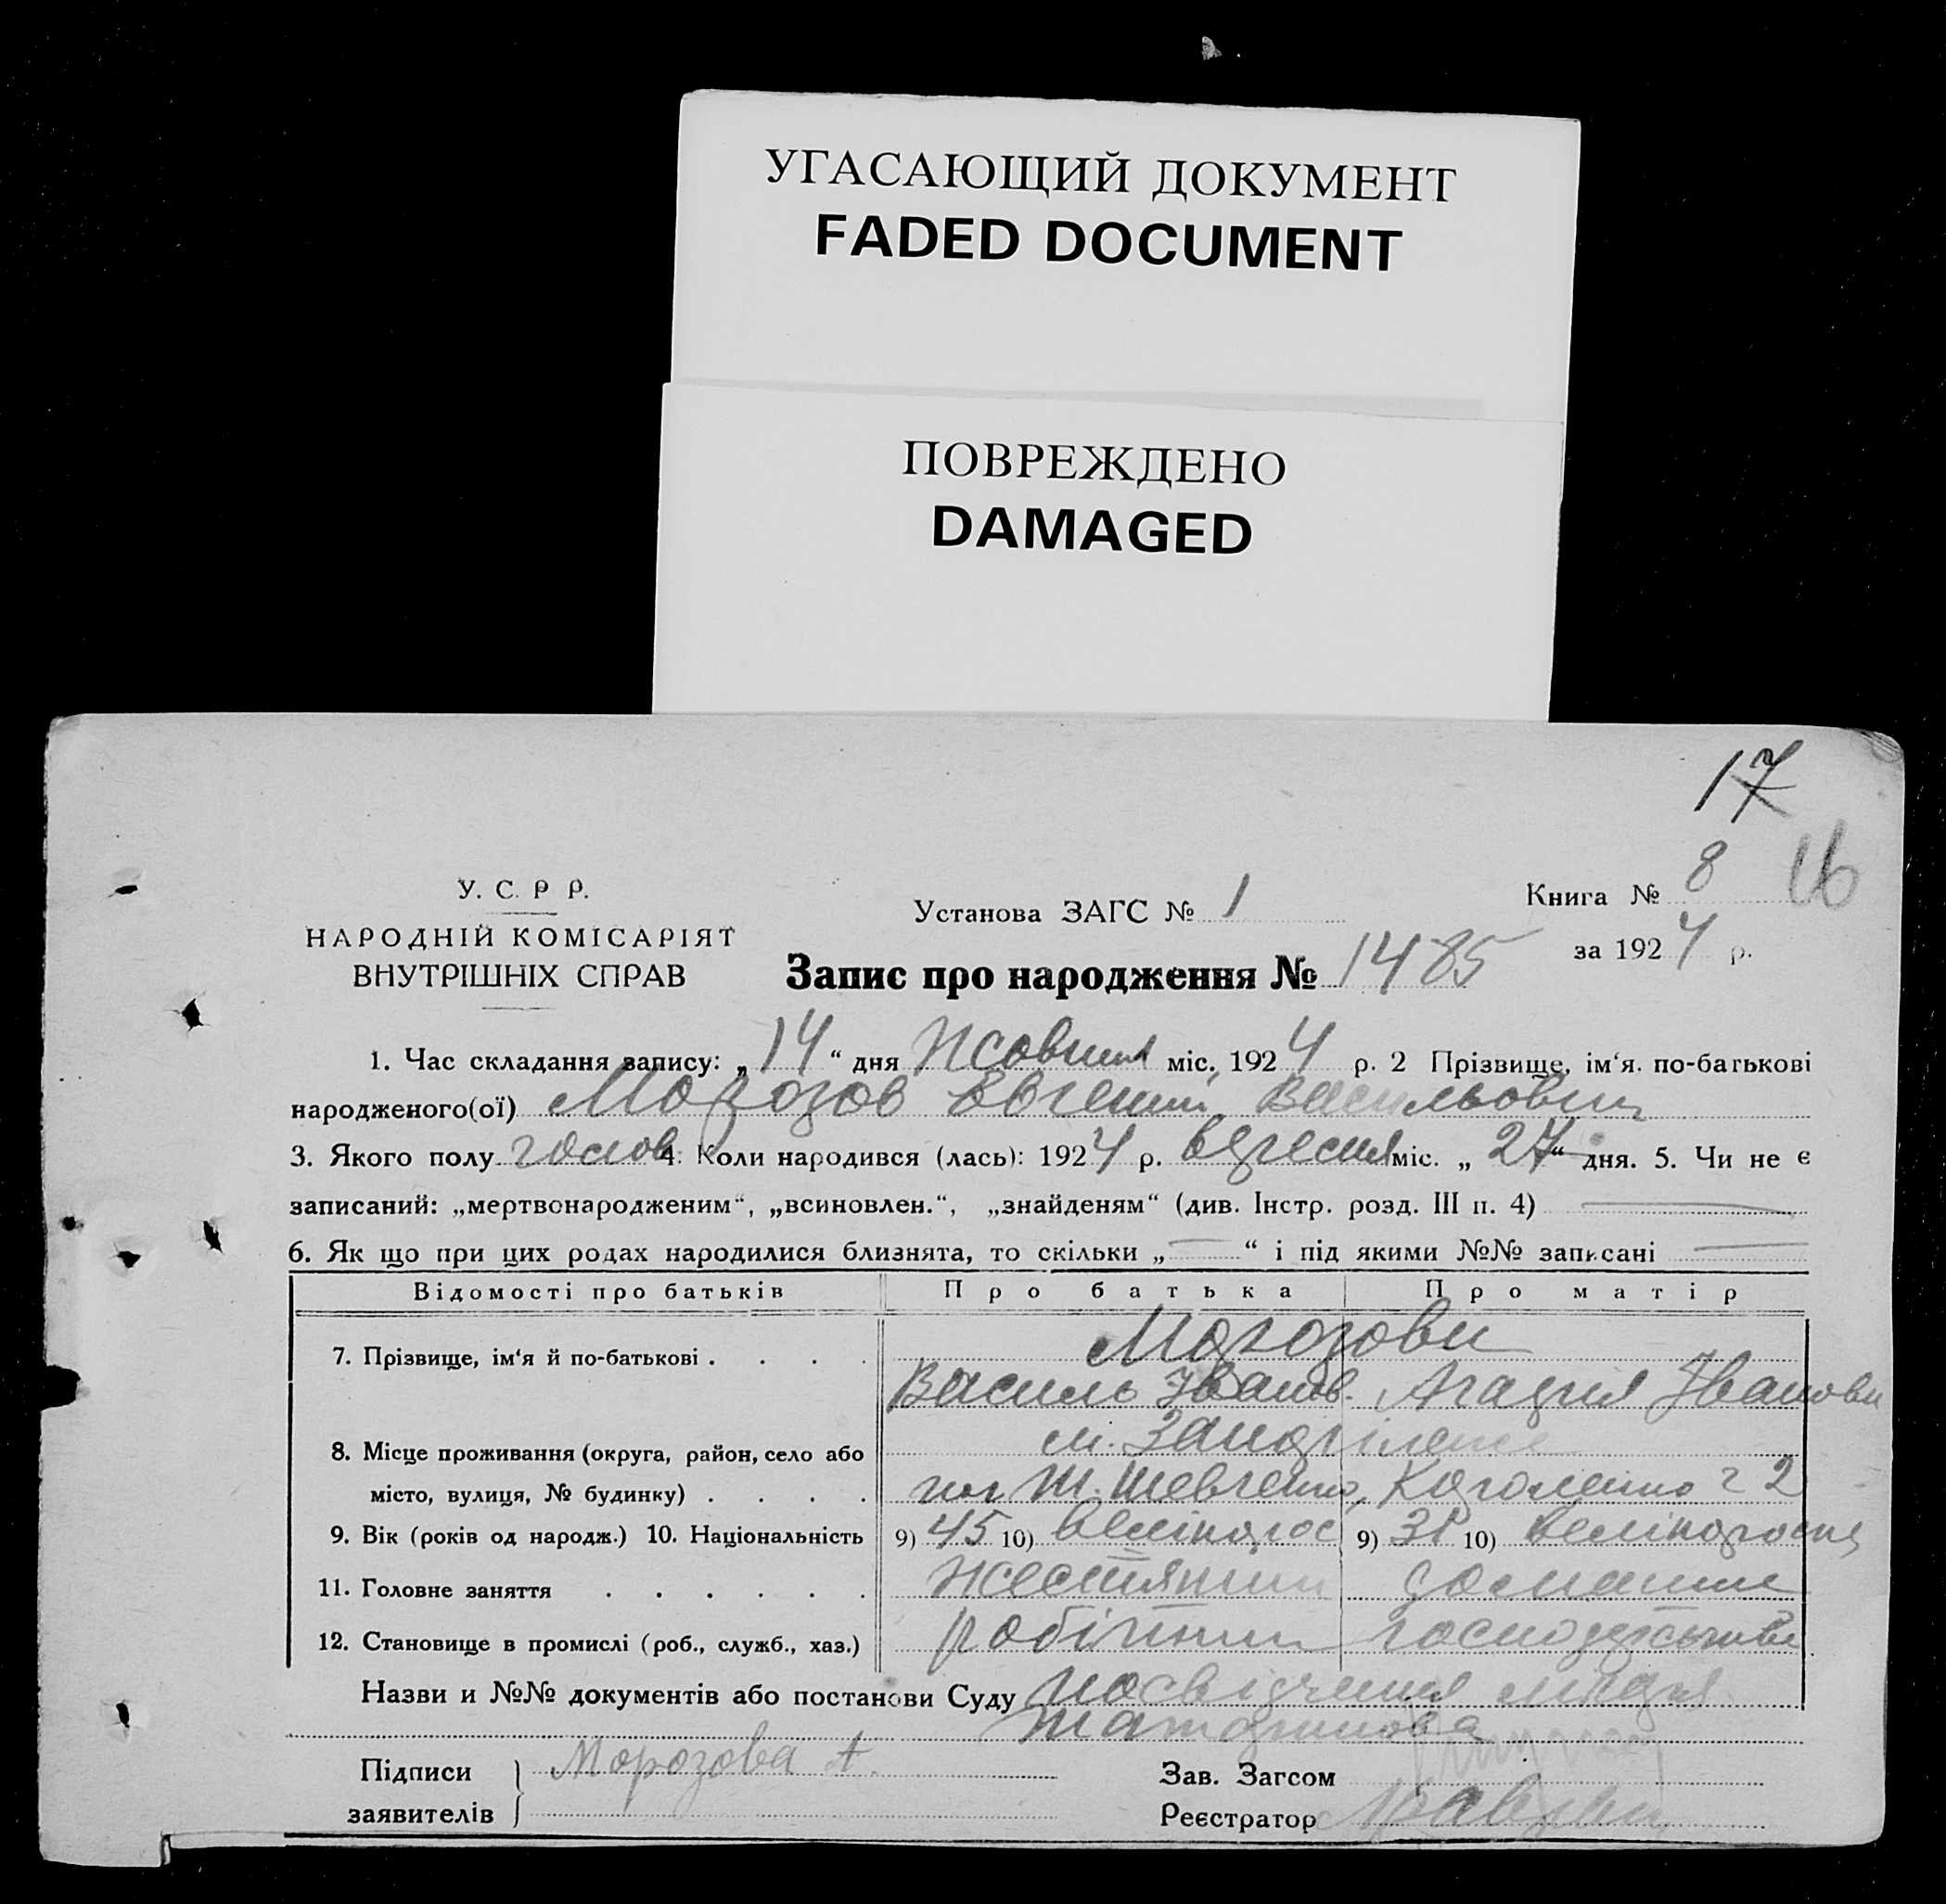 УГАСАЮЩИЙ ДОКУМЕНТ
FADED DOCUMENT
ПОВРЕЖДЕНО
DAMAGED
17
16
У. С. Р Р.
НАРОДНІЙ КОМІСАРІЯТ
ВНУТРІШНІХ СПРАВ
Установа ЗАГС № 1
Книга № 8
за 1924 р.
Запис про народження № 1485
1. Час складання запису: „14“ дня Жовтня міс. 1924 р. 2 Прізвище, ім‘я. по-батькові
народженого(ої) Морозов Евгений Васильович
3. Якого полу голов 4. Коли народився (лась): 1924 р. вересня міс. „27“ дня. 5. Чи не є
записаний: „мертвонародженим“, „всиновлен.“, „знайденям“ (див. Інстр. розд. III п. 4)
6. Як що при цих родах народилися близнята, то скільки „ “ і під якими №№ записані
Відомості про батьків Про батька Про матір
7. Прізвище, ім‘я й по-батькові . . . . Морозови
Василь Іванов. Івановн
8. Місце проживання (округа, район, село або м.
місто, вулиця, № будинку) . . . . Шевченко, 2
9. Вік (років од народж.) 10. Національність 9) 45 10) великорос 9) 10) великороска
11. Головне заняття . . . . . . Жестяник домашне
12. Становище в промислі (роб., служб., хаз.) робітник господарство
Назви и №№ документів або постанови Суду посвідчення лікаря
Підписи
заявителів
Морозова А.
Зав. Загсом
Реєстратор